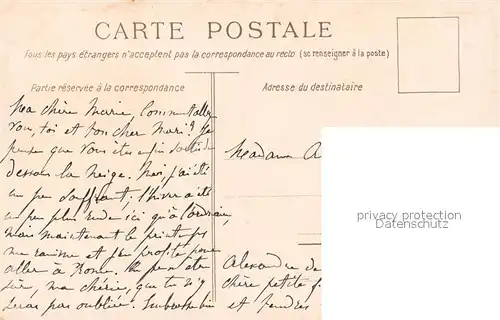 CARTE POSTALE
Tous les pays étrangers n'acceptent pas la correspondance au recto (se renseigner à la poste)
Partie réservée à la correspondance
Adresse du destinataire
Ma chère Marie, Comment allez
vous, toi et ton cher Mari? Je
pense que vous êtes enfin sortis de
dessous la neige. Moi, j'ai été
un peu souffrant; l'hiver a été
un peu plus rude ici qu'à l'ordinaire,
mais maintenant le printemps
me ranime et j'en profite pour
aller à Rome. Un peu
ma chérie, que tu n'y
seras pas oubliée.
Madame A
privacy protection
Datenschutz
Alexandre
chère petite
et tendres